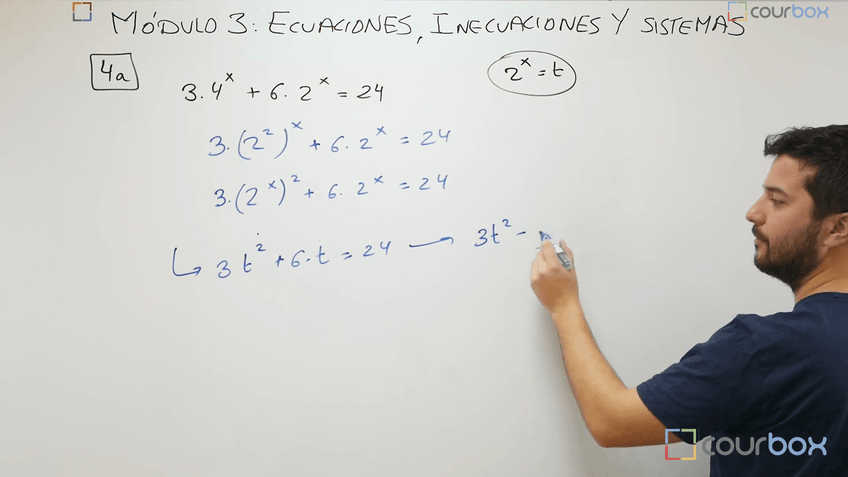 MÓDULO 3: ECUACIONES, INECUACIONES Y SISTEMAS
courbox
4a
3·4^x + 6·2^x = 24
2^x = t
3·(2^2)^x + 6·2^x = 24
3·(2^x)^2 + 6·2^x = 24
↳ 3t^2 + 6·t = 24 → 3t^2 -
courbox